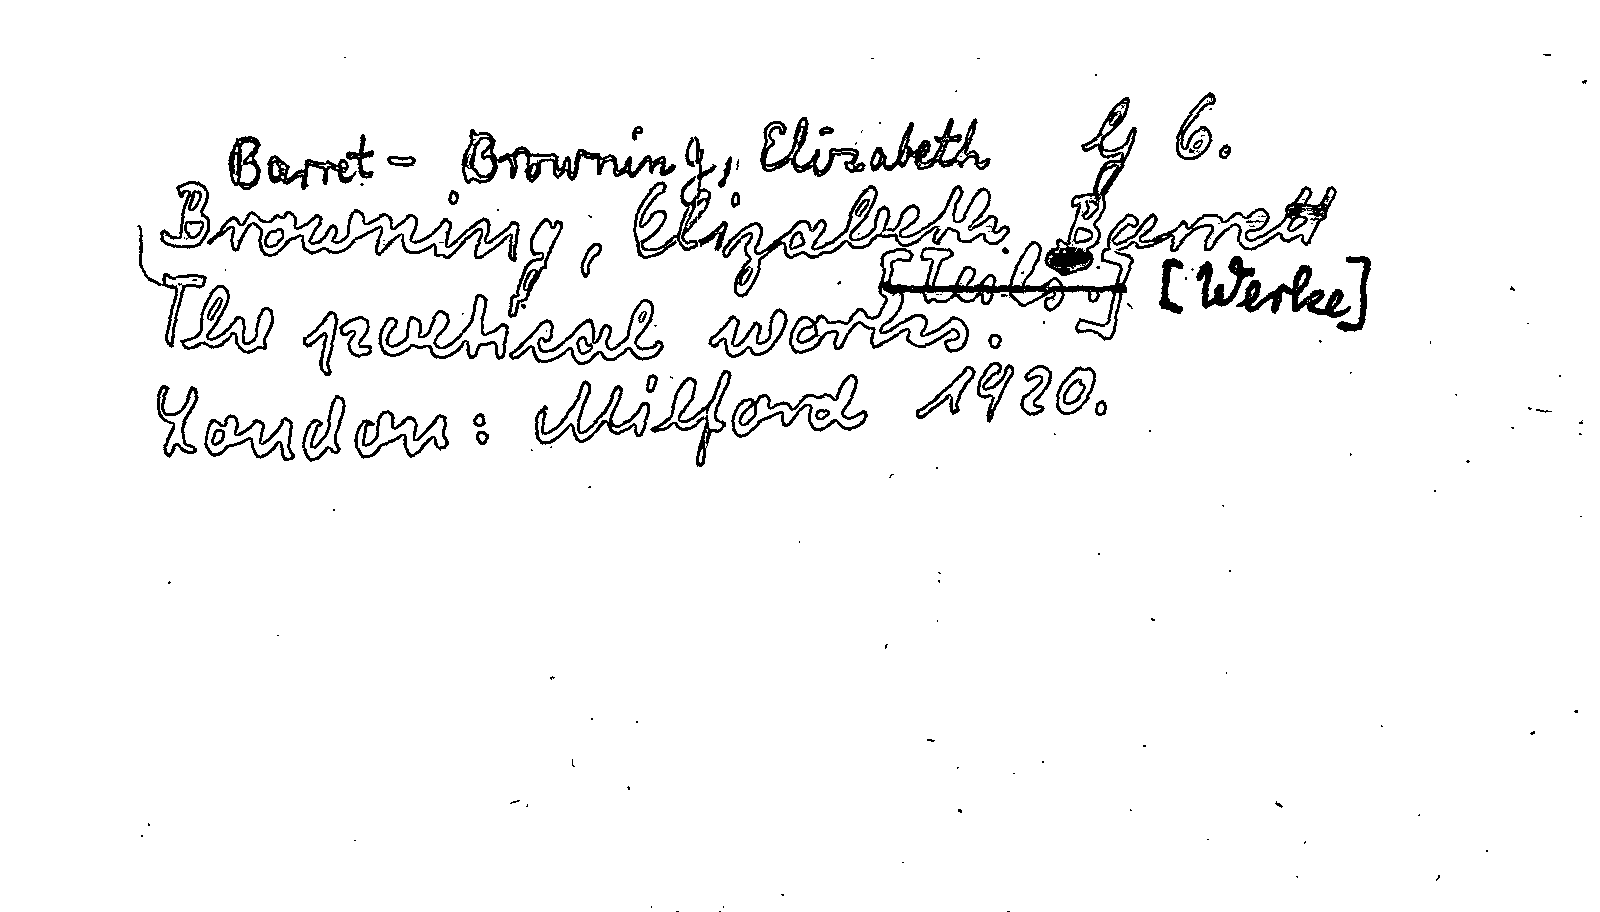 Barret - Browning, Elizabeth G 6.
Browning, Elizabeth Barrett
[Werke]
The poetical works.
London: Milford 1920.